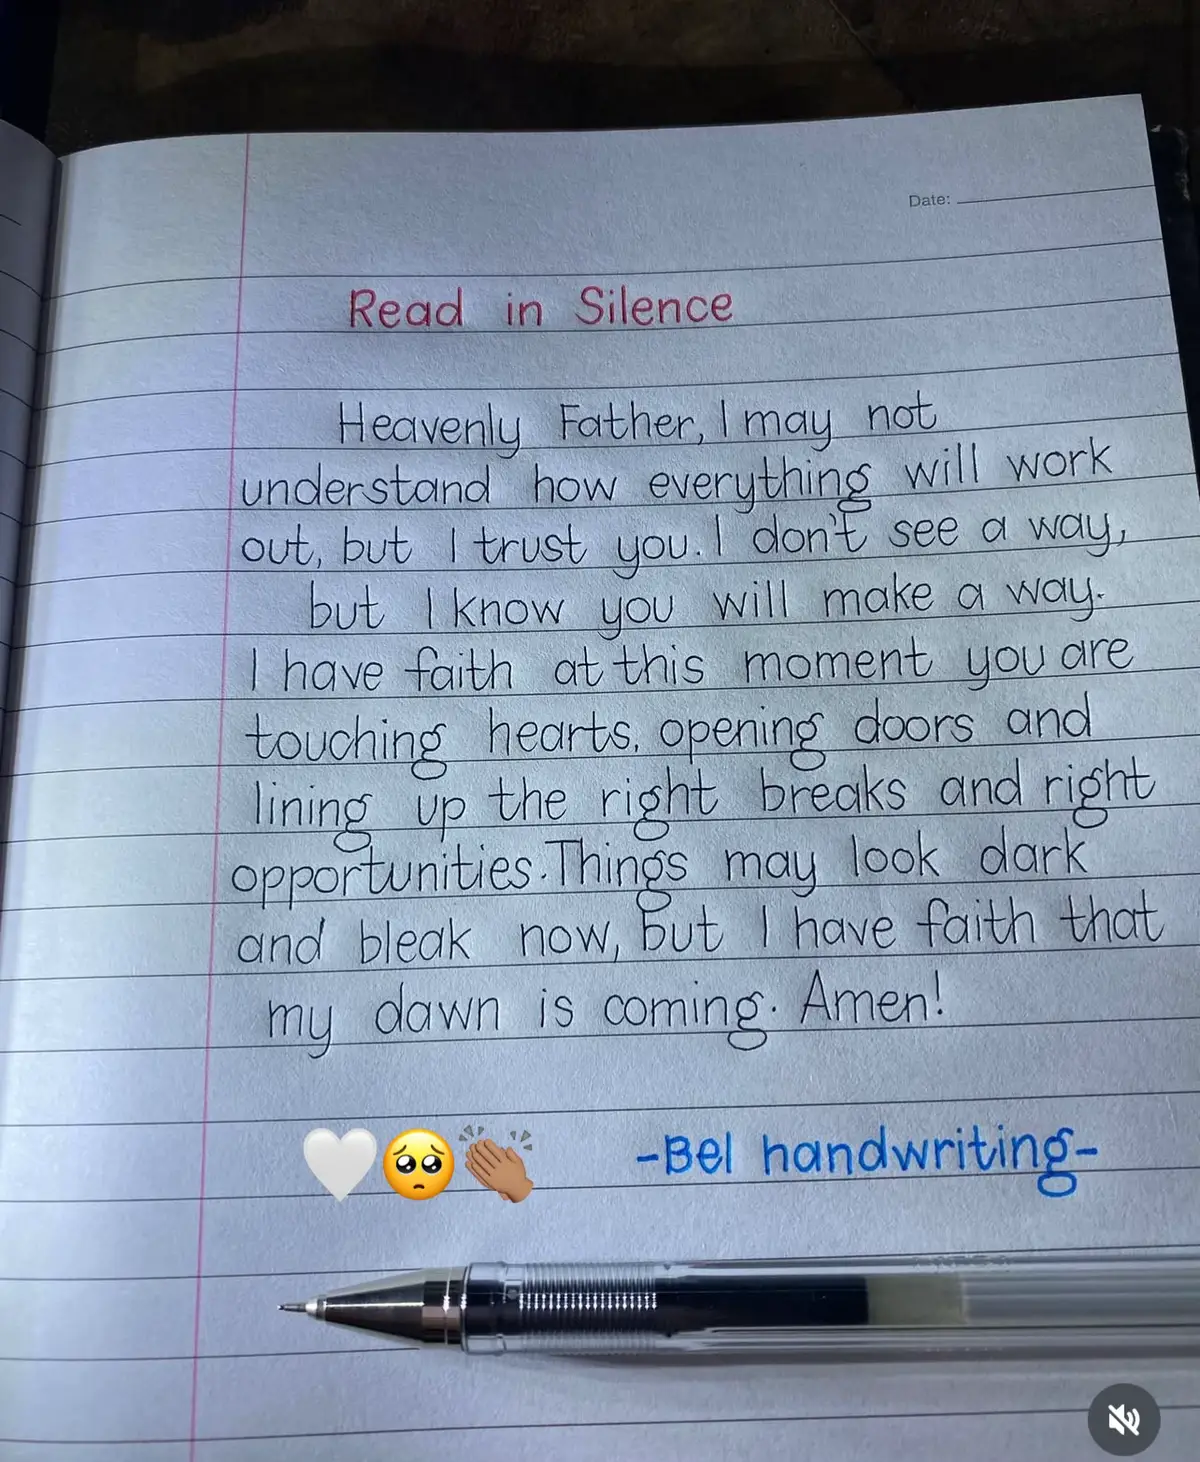 Date:
Read in Silence
Heavenly Father, I may not
understand how everything will work
out, but I trust you. I don't see a way,
but I know you will make a way.
I have faith at this moment you are
touching hearts, opening doors and
lining up the right breaks and right
opportunities. Things may look dark
and bleak now, but I have faith that
my dawn is coming. Amen!
🤍🥺👏🏽 -Bel handwriting-